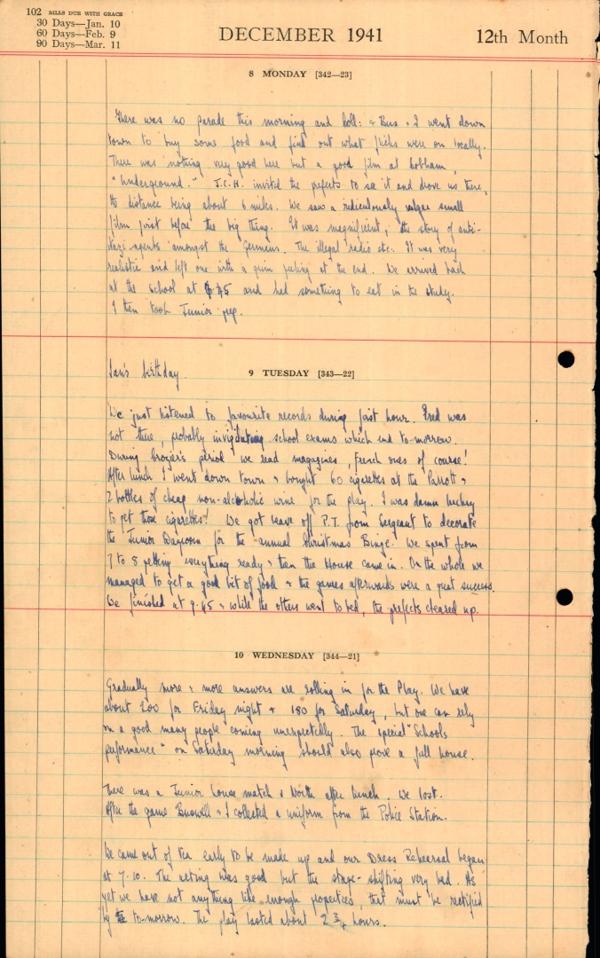 102 BILLS DUE WITH GRACE
30 Days—Jan. 10
60 Days—Feb. 9
90 Days—Mar. 11
DECEMBER 1941
12th Month
8 MONDAY [342—23]
There was no parade this morning and & I went down
town to buy some food and find out what flicks were on locally.
There was nothing very good here but a good film at Cobham,
"Underground." J.C.H. invited the prefects to see it and drove us there,
the distance being about 6 miles. We saw a ridiculously vulgar small
film first before the big thing. It was magnificent, the story of anti-
Nazi agents amongst the Germans. The illegal radio etc. It was very
realistic and left one with a grim feeling at the end. We arrived back
at the school at and had something to eat in the study.
I then took Junior prep.
Ian's birthday.
9 TUESDAY [343—22]
We just listened to favourite records during first hour. Fred was
not there, probably invigilating school exams which end to-morrow.
During period we read magazines, French ones of course!
After lunch I went down town & bought 60 cigarettes at the Parrott &
2 bottles of cheap non-alcoholic wine for the play. I was damn lucky
to get those cigarettes! We got leave off P.T. from Sergeant to decorate
the Junior Dayroom for the annual Christmas Binge. We spent from
7 to 8 getting everything ready & then the House came in. On the whole we
managed to get a good bit of food & the games afterwards were a great success.
We finished at 9.45 & while the others went to bed, the prefects cleared up.
10 WEDNESDAY [344—21]
Gradually more & more answers are rolling in for the Play. We have
about 200 for Friday night & 180 for Saturday, but one can rely
on a good many people coming unexpectedly. The special "Schools
performance" on Saturday morning should also prove a full house.
There was a Junior house match v North after lunch. We lost.
After the game & I collected a uniform from the Police Station.
We came out of tea early to be made up and our Dress Rehearsal began
at 7.10. The acting was good but the stage-shifting very bad. As
yet we have not anything like enough properties, that must be rectified
by to-morrow. The play lasted about 2 3/4 hours.